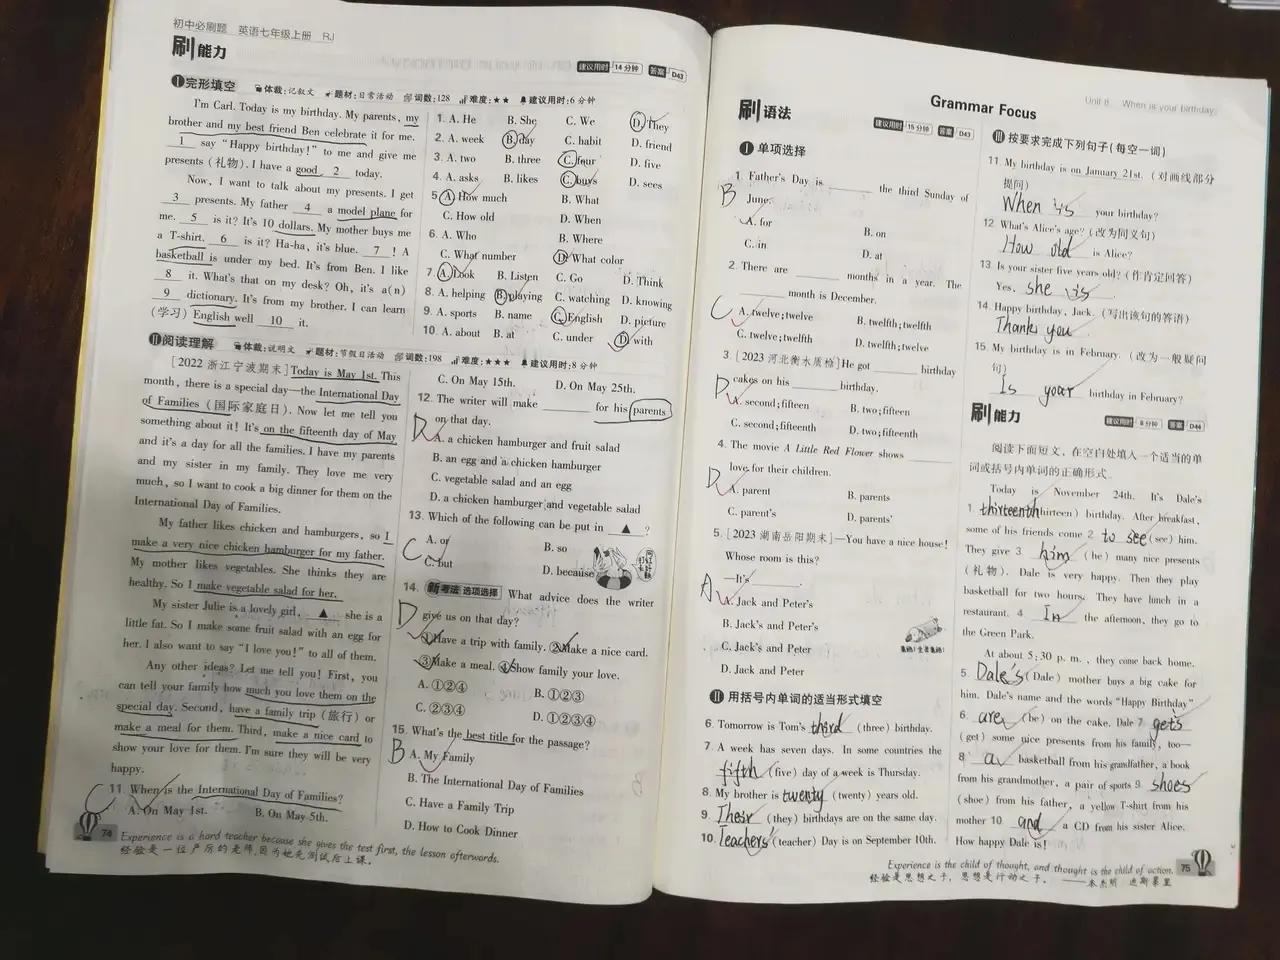 初中必刷题 英语七年级上册 RJ
刷能力
建议用时 14分钟 答案 D43
Ⅰ完形填空 体裁:记叙文 题材:日常活动 词数:128 难度:★★ 建议用时:6分钟
I'm Carl. Today is my birthday. My parents, my
brother and my best friend Ben celebrate it for me.
1 say "Happy birthday!" to me and give me
presents (礼物). I have a good 2 today.
Now, I want to talk about my presents. I get
3 presents. My father 4 a model plane for
me. 5 is it? It's 10 dollars. My mother buys me
a T-shirt. 6 is it? Ha-ha, it's blue. 7 ! A
basketball is under my bed. It's from Ben. I like
8 it. What's that on my desk? Oh, it's a(n)
9 dictionary. It's from my brother. I can learn
(学习) English well 10 it.
1. A. He B. She C. We D. They
2. A. week B. day C. habit D. friend
3. A. two B. three C. four D. five
4. A. asks B. likes C. buys D. sees
5. A. How much B. What
C. How old D. When
6. A. Who B. Where
C. What number D. What color
7. A. Look B. Listen C. Go D. Think
8. A. helping B. playing C. watching D. knowing
9. A. sports B. name C. English D. picture
10. A. about B. at C. under D. with
Ⅱ阅读理解 体裁:说明文 题材:节假日活动 词数:198 难度:★★★ 建议用时:8分钟
[2022 浙江宁波期末] Today is May 1st. This
month, there is a special day—the International Day
of Families (国际家庭日). Now let me tell you
something about it! It's on the fifteenth day of May
and it's a day for all the families. I have my parents
and my sister in my family. They love me very
much, so I want to cook a big dinner for them on the
International Day of Families.
My father likes chicken and hamburgers, so I
make a very nice chicken hamburger for my father.
My mother likes vegetables. She thinks they are
healthy. So I make vegetable salad for her.
My sister Julie is a lovely girl, ▲ she is a
little fat. So I make some fruit salad with an egg for
her. I also want to say "I love you!" to all of them.
Any other ideas? Let me tell you! First, you
can tell your family how much you love them on the
special day. Second, have a family trip (旅行) or
make a meal for them. Third, make a nice card to
show your love for them. I'm sure they will be very
happy.
C
11. When is the International Day of Families?
A. On May 1st. B. On May 5th.
C. On May 15th. D. On May 25th.
12. The writer will make ______ for his parents
on that day.
D
A. a chicken hamburger and fruit salad
B. an egg and a chicken hamburger
C. vegetable salad and an egg
D. a chicken hamburger and vegetable salad
13. Which of the following can be put in ▲ ?
A. or B. so
C
C. but D. because
14. 新考法 选项选择 What advice does the writer
give us on that day?
D
①Have a trip with family. ②Make a nice card.
③Make a meal. ④Show family your love.
A. ①②④ B. ①②③
C. ②③④ D. ①②③④
15. What's the best title for the passage?
B
A. My Family
B. The International Day of Families
C. Have a Family Trip
D. How to Cook Dinner
74 Experience is a hard teacher because she gives the test first, the lesson afterwords.
经验是一位严厉的老师,因为她先测试后上课。
Unit 8 When is your birthday?
刷语法
Grammar Focus
建议用时 15分钟 答案 D43
Ⅰ 单项选择
1. Father's Day is ______ the third Sunday of
B
June.
A. for B. on
C. in D. at
2. There are ______ months in a year. The
______ month is December.
C
A. twelve; twelve B. twelfth; twelfth
C. twelve; twelfth D. twelfth; twelve
3. [2023 河北衡水质检] He got ______ birthday
cakes on his ______ birthday.
D
A. second; fifteen B. two; fifteen
C. second; fifteenth D. two; fifteenth
4. The movie A Little Red Flower shows ______
love for their children.
D
A. parent B. parents
C. parent's D. parents'
5. [2023 湖南岳阳期末]—You have a nice house!
Whose room is this?
—It's ______.
A
A. Jack and Peter's
B. Jack's and Peter's
C. Jack's and Peter
D. Jack and Peter
Ⅱ 用括号内单词的适当形式填空
6. Tomorrow is Tom's third (three) birthday.
7. A week has seven days. In some countries the
fifth (five) day of a week is Thursday.
8. My brother is twenty (twenty) years old.
9. Their (they) birthdays are on the same day.
10. Teachers' (teacher) Day is on September 10th.
Ⅲ 按要求完成下列句子(每空一词)
11. My birthday is on January 21st. (对画线部分
提问)
When is your birthday?
12. What's Alice's age? (改为同义句)
How old is Alice?
13. Is your sister five years old? (作肯定回答)
Yes, she is.
14. Happy birthday, Jack. (写出该句的答语)
Thank you
15. My birthday is in February. (改为一般疑问
句)
Is your birthday in February?
刷能力
建议用时 8分钟 答案 D44
阅读下面短文，在空白处填入一个适当的单
词或括号内单词的正确形式。
Today is November 24th. It's Dale's
1. thirteenth (thirteen) birthday. After breakfast,
some of his friends come 2 to see (see) him.
They give 3 him (he) many nice presents
(礼物). Dale is very happy. Then they play
basketball for two hours. They have lunch in a
restaurant. 4 In the afternoon, they go to
the Green Park.
At about 5:30 p. m. , they come back home.
5. Dale's (Dale) mother buys a big cake for
him. Dale's name and the words "Happy Birthday"
6 are (be) on the cake. Dale 7 gets
(get) some nice presents from his family, too—
8 a basketball from his grandfather, a book
from his grandmother, a pair of sports 9 shoes
(shoe) from his father, a yellow T-shirt from his
mother 10 and a CD from his sister Alice.
How happy Dale is!
Experience is the child of thought, and thought is the child of action. 75
经验是思想之子，思想是行动之子。 ——本杰明·迪斯雷里